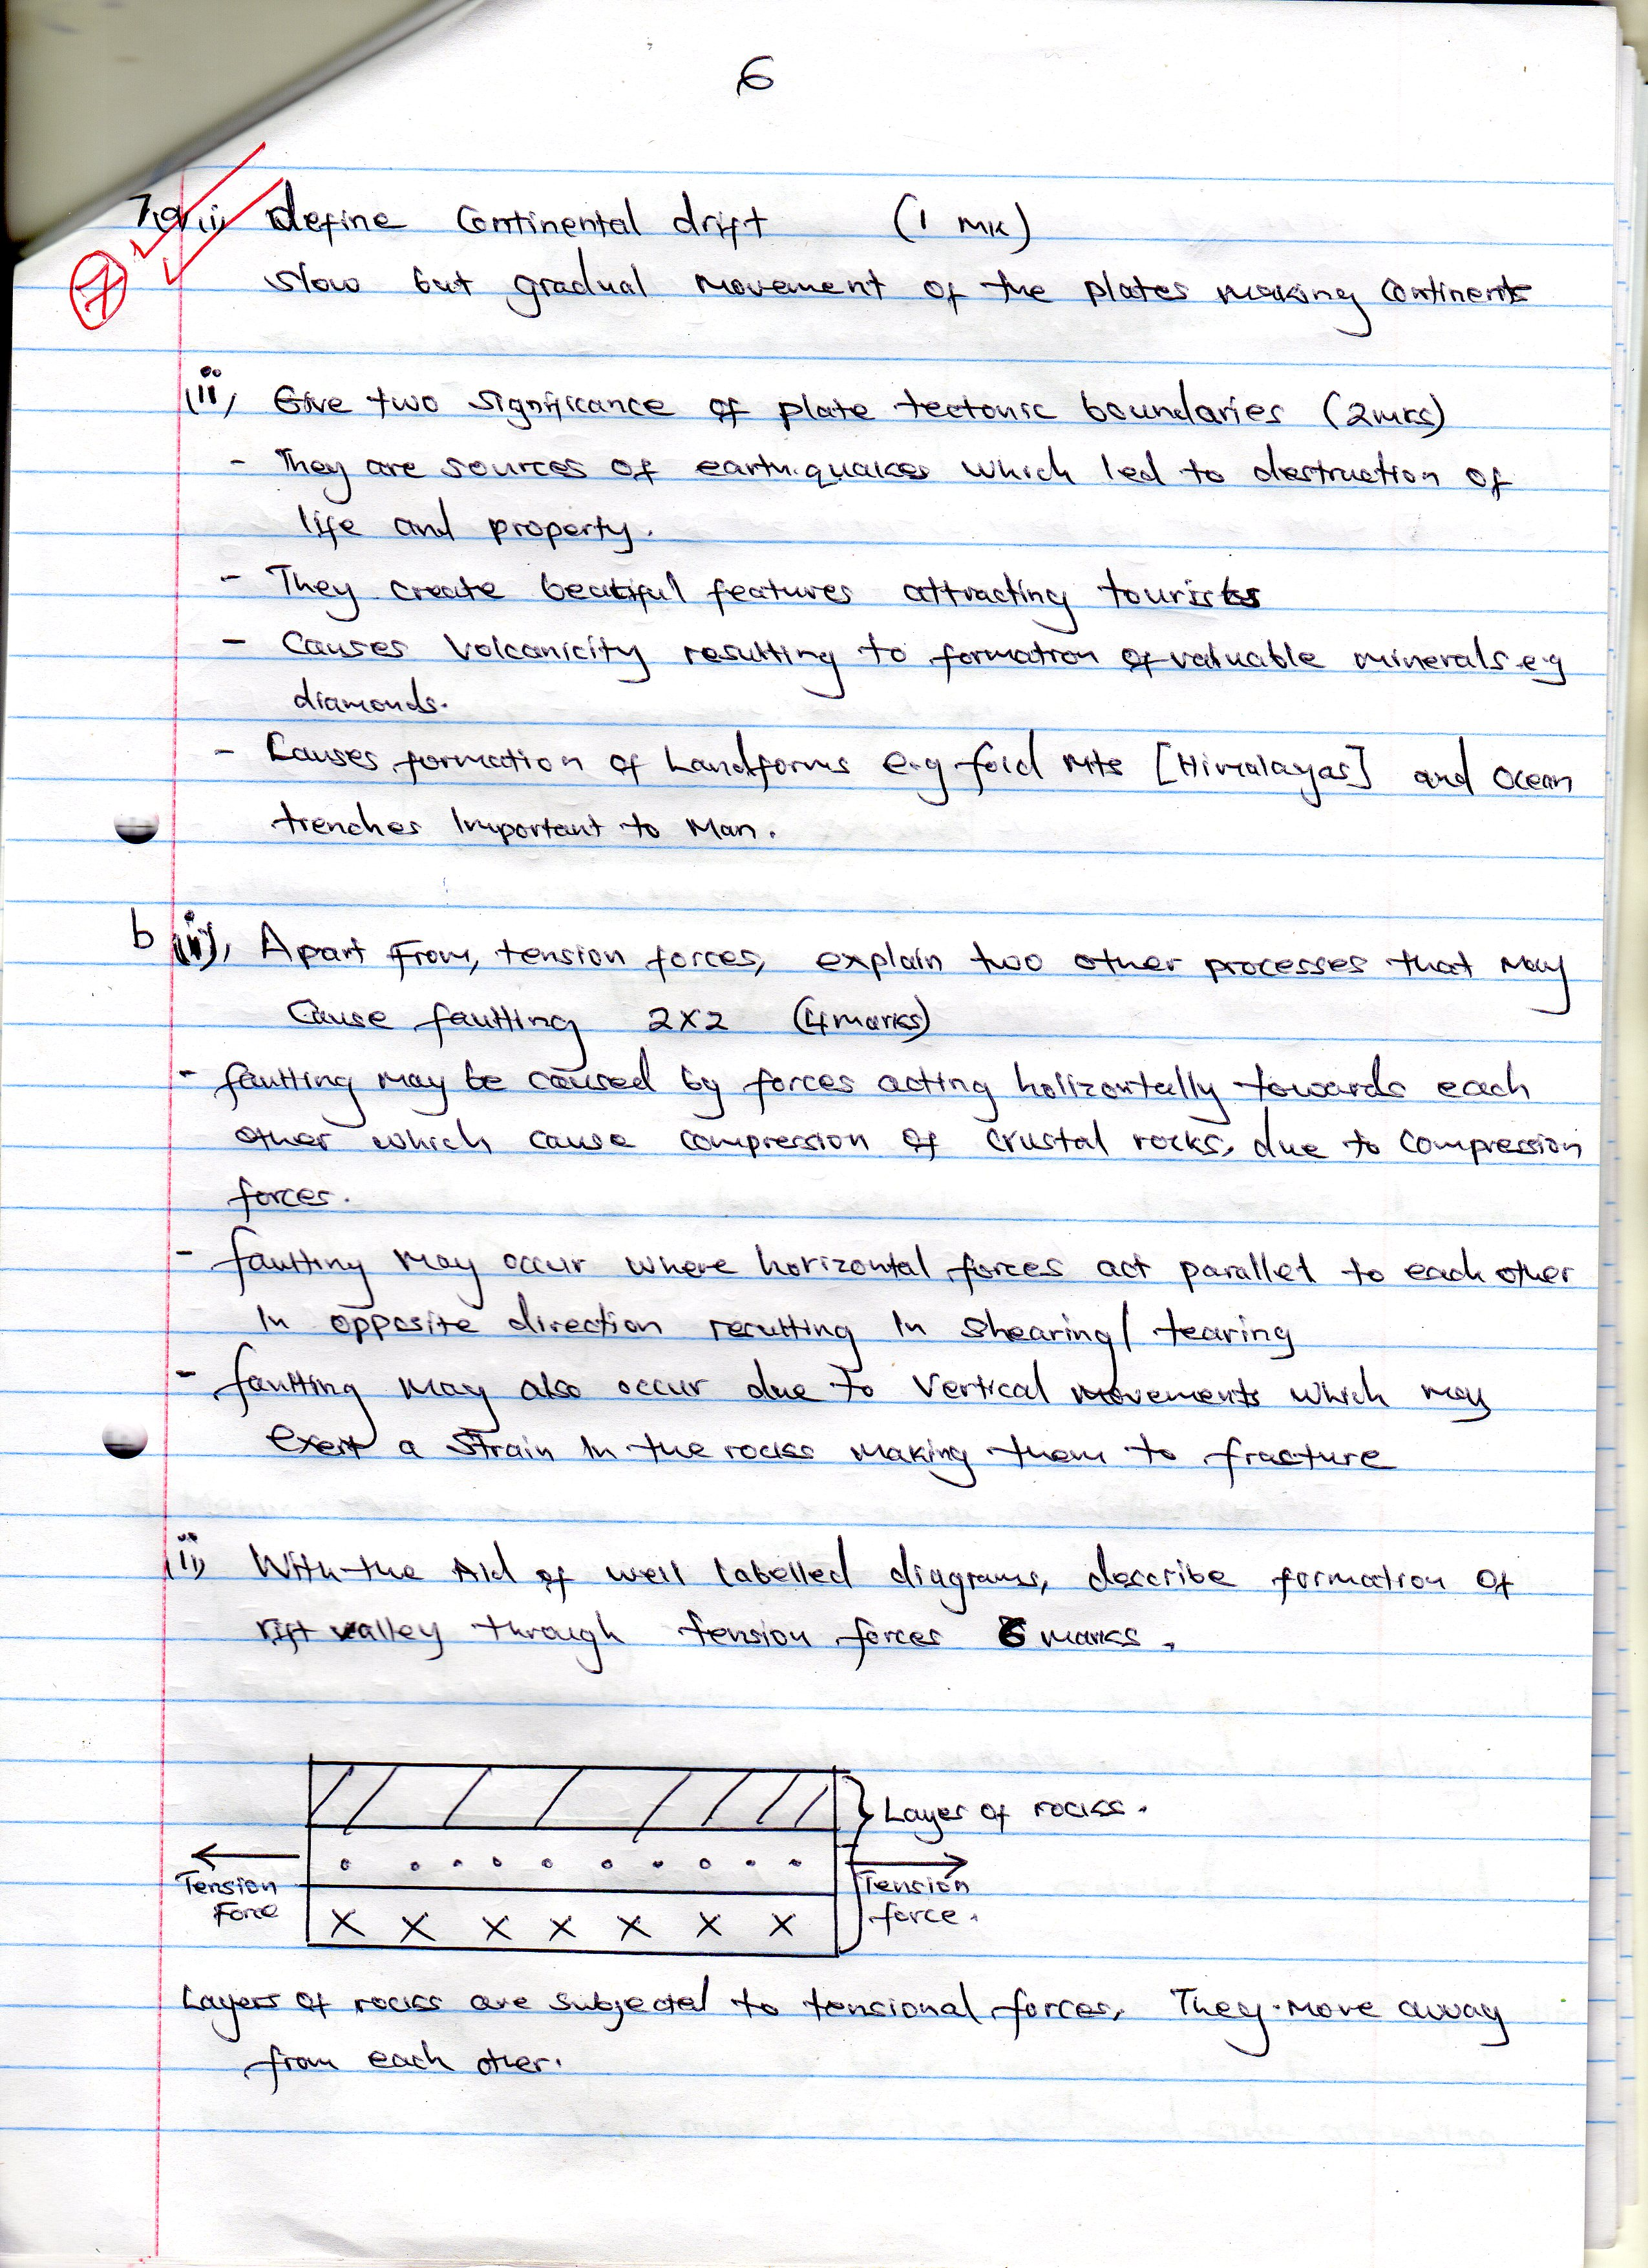 6
7(a)(i) define Continental drift (1 mk)
7
slow but gradual movement of the plates making Continents
(ii) Give two significance of plate tectonic boundaries (2mks)
- They are sources of earthquakes which led to destruction of
life and property.
- They create beatiful features attracting tourists
- Causes Volcanicity resulting to formation of valuable minerals e.g
diamonds.
- Causes formation of Landforms e.g fold mts [Himalayas] and Ocean
trenches Important to Man.
b (i), Apart From, tension forces, explain two other processes that may
Cause faulting 2x2 (4marks)
- faulting may be caused by forces acting holizontally towards each
other which cause compression of crustal rocks, due to compression
forces.
- faulting may occur where horizontal forces act parallel to each other
In opposite direction resulting In shearing / tearing
- faulting may also occur due to vertical movements which may
exert a strain In the rocks making them to fracture
(ii) With the Aid of well labelled diagrams, describe formation of
rift valley through tension forces 6 marks.
Layer of rocks.
Tension
Force
Tension
force.
Layers of rocks are subjected to tensional forces, They move away
from each other.